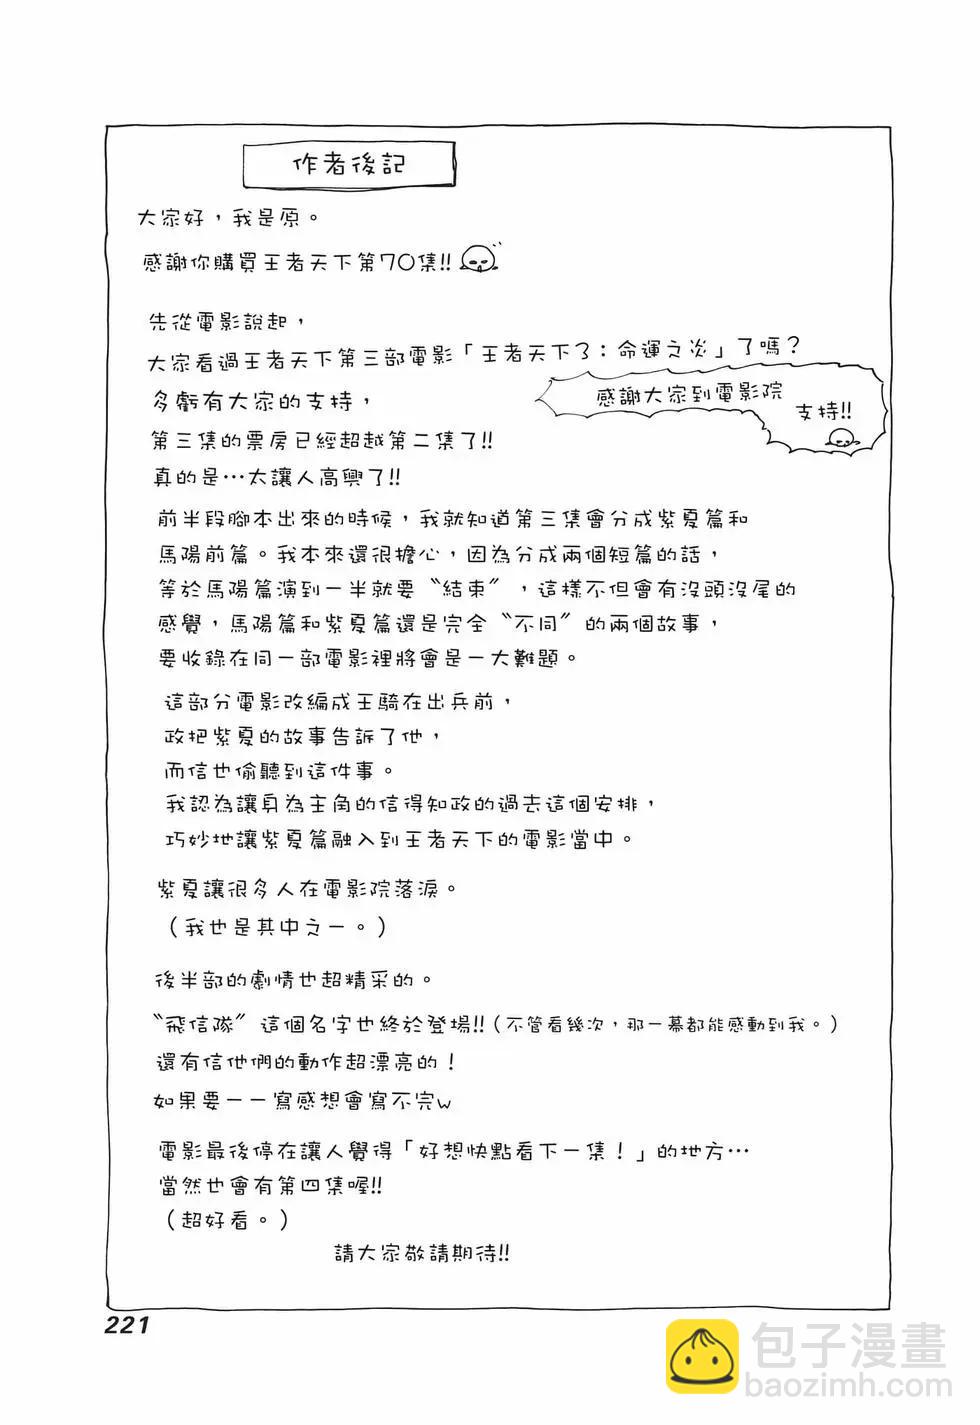 作者後記
大家好，我是原。
感謝你購買王者天下第70集!!
先從電影說起，
大家看過王者天下第三部電影「王者天下3：命運之炎」了嗎？
感謝大家到電影院
支持!!
多虧有大家的支持，
第三集的票房已經超越第二集了!!
真的是…太讓人高興了!!
前半段腳本出來的時候，我就知道第三集會分成紫夏篇和
馬陽前篇。我本來還很擔心，因為分成兩個短篇的話，
等於馬陽篇演到一半就要〝結束〞，這樣不但會有沒頭沒尾的
感覺，馬陽篇和紫夏篇還是完全〝不同〞的兩個故事，
要收錄在同一部電影裡將會是一大難題。
這部分電影改編成王騎在出兵前，
政把紫夏的故事告訴了他，
而信也偷聽到這件事。
我認為讓身為主角的信得知政的過去這個安排，
巧妙地讓紫夏篇融入到王者天下的電影當中。
紫夏讓很多人在電影院落淚。
（我也是其中之一。）
後半部的劇情也超精采的。
〝飛信隊〞這個名字也終於登場!!（不管看幾次，那一幕都能感動到我。）
還有信他們的動作超漂亮的！
如果要一一寫感想會寫不完w
電影最後停在讓人覺得「好想快點看下一集！」的地方…
當然也會有第四集喔!!
（超好看。）
請大家敬請期待!!
221
包子漫畫
baozimh.com